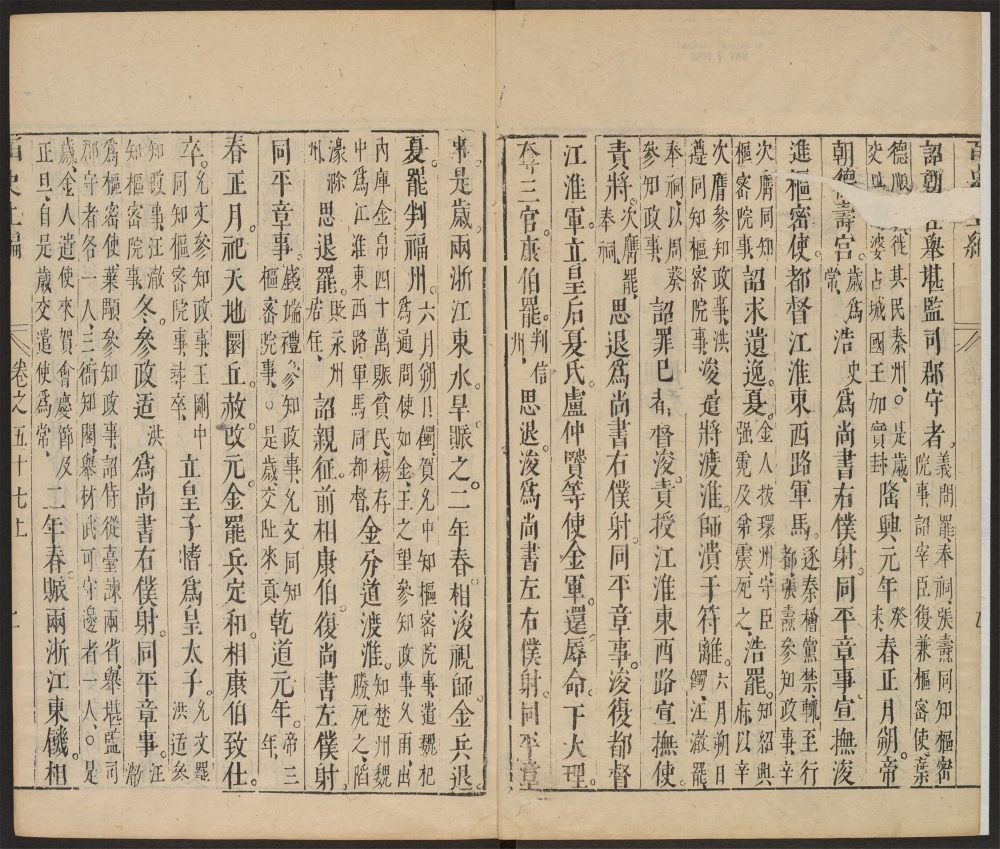 詔朝 在舉堪監司郡守者
義問罷奉祠張壽同知樞密
院事詔宰臣復兼樞密使棄
德順 徙其民秦州○是歲
交 婆占城國王加實封
隆興元年
癸
未
春正月朔帝
朝德壽宮
歲爲
常
浩
史
爲尚書右僕射同平章事宣撫浚
進樞密使都督江淮東西路軍馬
逐秦檜黨禁輒至行
都張壽參知政事辛
次膺同知
樞密院事
詔求遺逸夏
金人拔環州守臣
强霓及弟震死之
浩罷
知紹興
府以辛
次膺參知政事洪
遵同知樞密院事
浚遣將渡淮師潰于符離
六月朔日
觸汪澈罷
奉祠以周葵
參知政事
詔罪已者督浚責授江淮東西路宣撫使
責將
次膺罷
奉祠
思退爲尚書右僕射同平章事浚復都督
江淮軍立皇后夏氏盧仲賢等使金軍還辱命下大理
奪三官康伯罷
判信
州
思退浚爲尚書左右僕射同平章
事是歲兩浙江東水旱賑之二年春相浚視師金兵退
夏罷判福州
六月朔日觸賀允中知樞密院事遣魏杞
爲通問使如金王之望參知政事久雨出
內庫金帛四十萬賑貧民楊存
中爲江淮東西路軍馬同都督
金分道渡淮
知楚州魏
勝死之陷
濠滁
州
思退罷
貶永州
居住
詔親征前相康伯復尚書左僕射
同平章事
錢端禮參知政事允文同知
樞密院事○是歲交阯來貢
乾道元年
帝三
年
春正月祀天地圜丘赦改元金罷兵定和相康伯致仕
卒
允文參知政事王剛中
同知樞密院事尋卒
立皇子愭爲皇太子
允文罷
洪适參
知政事汪澈
知樞密院事
冬參政适
洪
爲尚書右僕射同平章事
汪
澈
爲樞密使葉顒參知政事詔侍從臺諫兩省舉堪監司
郡守者各一人三衙知閤舉材武可守邊者一人○是
歲金人遣使來賀會慶節及
正旦自是歲交遣使爲常
二年春賑兩浙江東饑相
百史 編
卷之五十七上